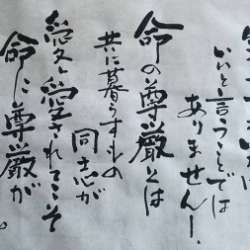 いいと言うことでは
ありません!
命の尊厳とは
共に暮らすもの
同志が
愛し愛されてこそ
命に尊厳が